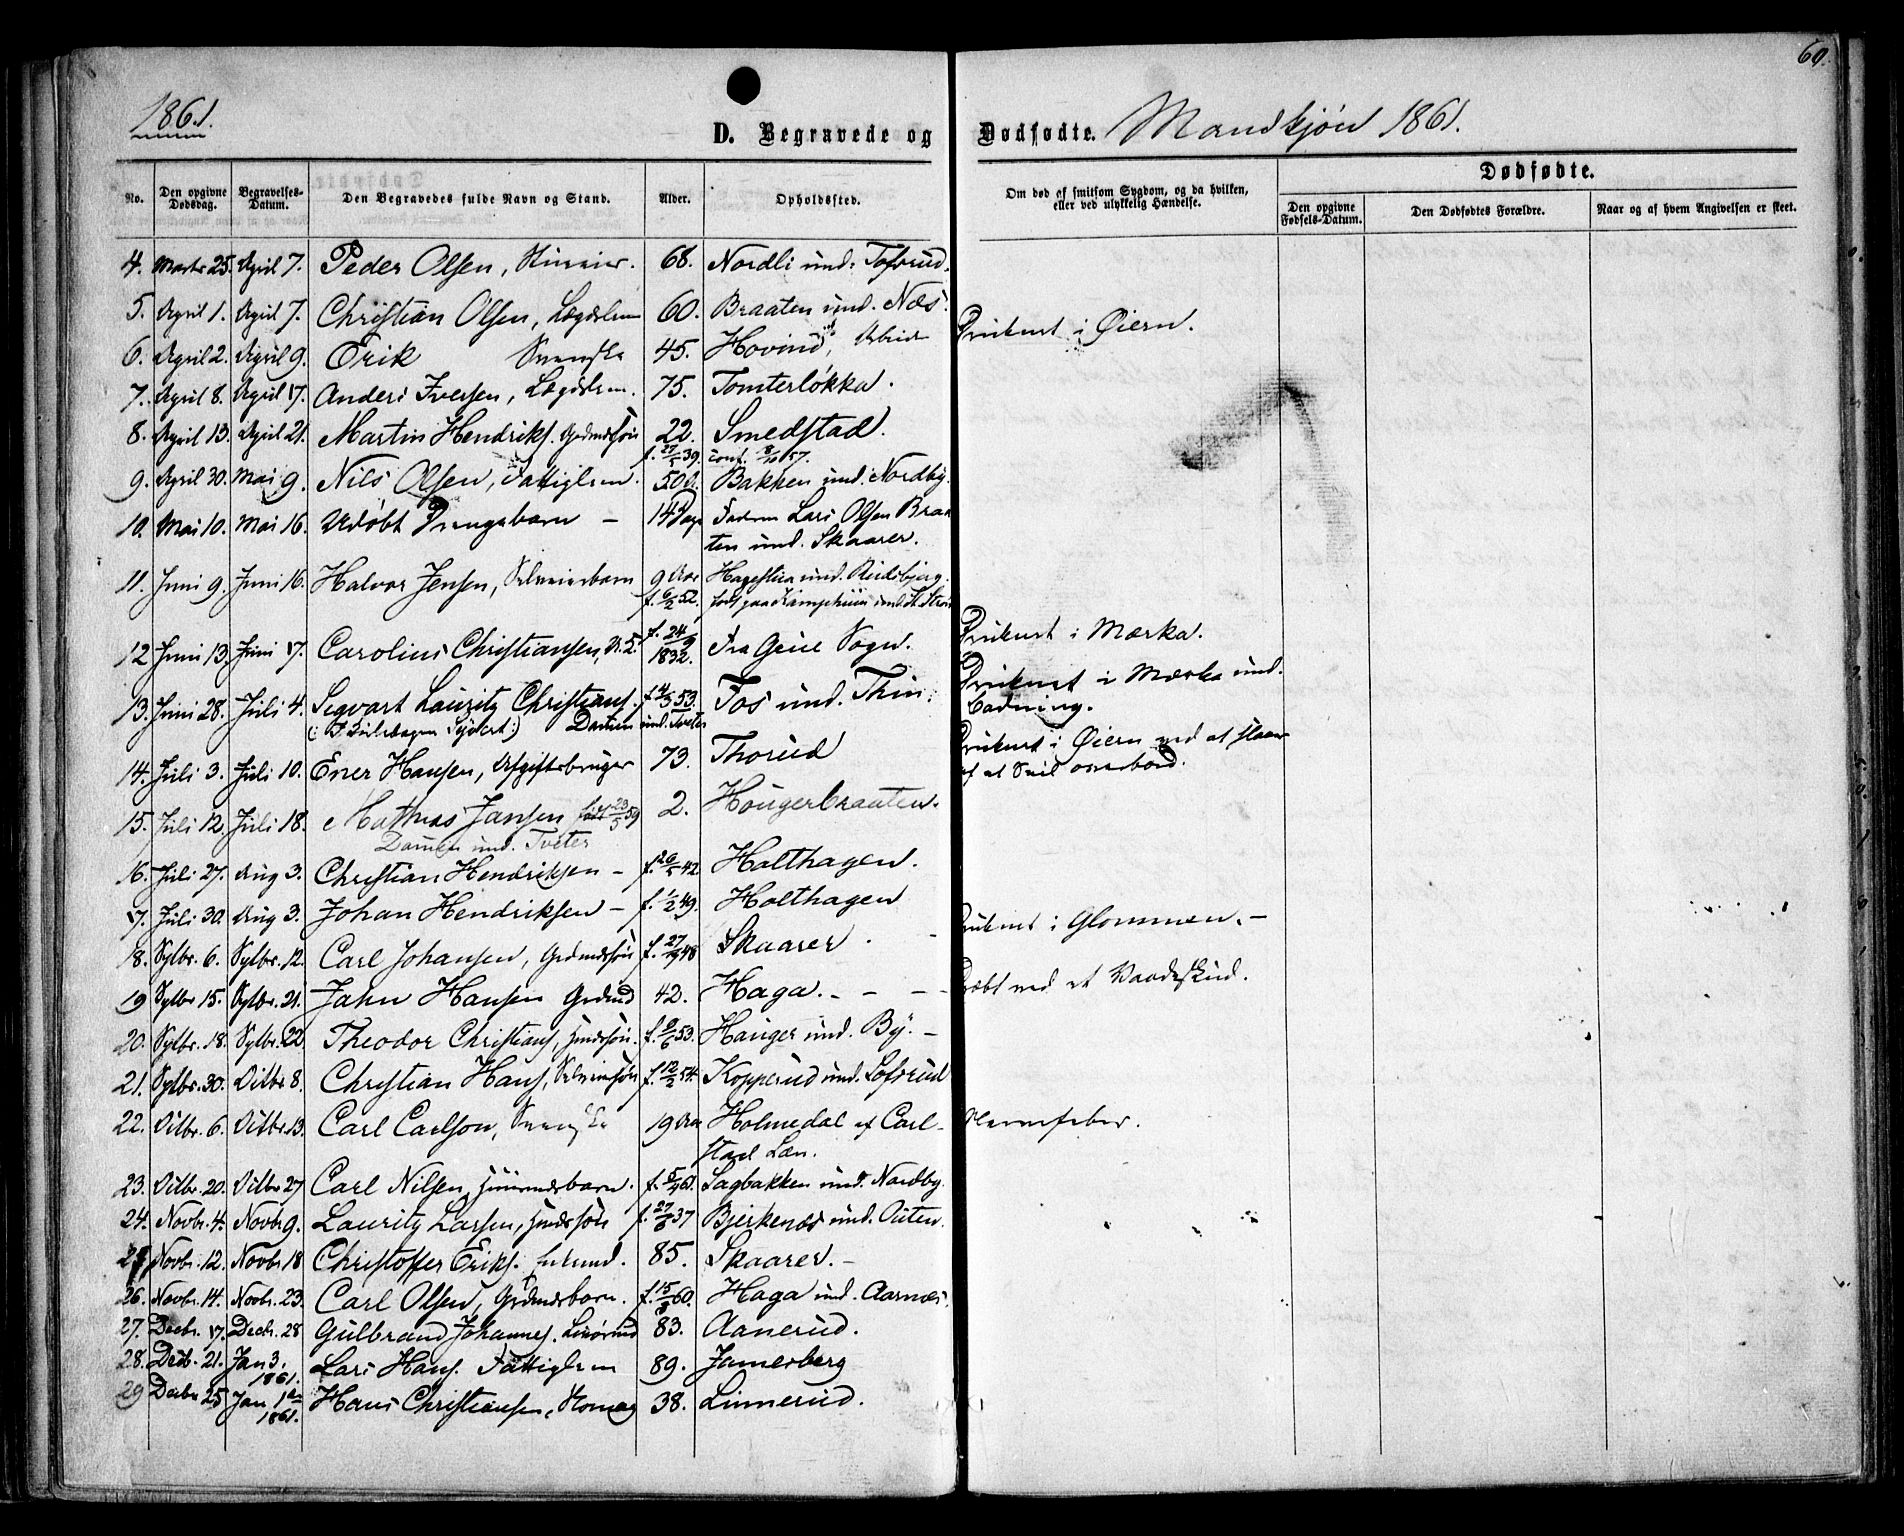 60.
1861.
D. Begravede og Dødfødte. Mandkjøn 1861.
No. Den opgivne Dødsdag. Begravelses-Datum. Den Begravedes fulde Navn og Stand. Alder. Opholdssted. Om død af smitsom Sygdom, og da hvilken, eller ved ulykkelig Hændelse. Dødfødte.
Den opgivne Fødsels-Datum. Den Dødfødtes Forældre. Naar og af hvem Angivelsen er skeet.
4. Marts 25. April 7. Peder Olsen, 68. Nordli und. Tofsrud.
5. April 1. April 7. Christian Olsen, Lægdslem 60. Braaten und. Næs.
6. April 2. April 9. Erik Svenske 45. Hovind, Druknet i Øiern.
7. April 8. April 17. Anders Iversen, Lægdslem. 75. Tomterløkka.
8. April 13. April 21. Martin Hendriks. Grdmdssøn 22. Smedstad.
f. 27/5 39. conf. 8/10 57.
9. April 30. Mai 9. Nils Olsen, Fattiglem. 50 Bakken und. Nordby.
10. Mai 10. Mai 16. Udøbt Drengebarn – 14 Dage Faderen Lars Olsen Braa
ten und. Skaarer.
11. Juni 9. Juni 16. Halvor Jensen, Selveierbarn 9 Aar
f. 6/2 52.
12 Juni 13. Juni 17. Carolius Christiansen, f. 24/9 1832. Fra Geue Sogn. Druknet i Mærka.
13. Juni 28. Juli 4. Segvart Lauritz Christians. f. 4/5 53. Fos und. Thin Druknet i Mærka und.
Damen und. Tveter Badning.
14. Juli 3. Juli 10. Ener Hansen, Afgiftsbruger 73. Thorud Druknet i Øiern ved at slaaes
af et Seil overbord.
15. Juli 12. Juli 18. Mathias Jansen født 23/5 59 2. Hougerbraaten.
Damen und. Tveter
16. Juli 27. Aug 3. Christian Hendriksen – f. 26/5 42 Holthagen.
17. Juli 30. Aug 3. Johan Hendriksen – f. 1/2 49. Holthagen
18. Sptbr. 6. Sptbr. 12. Carl Johansen, Grdmdssøn f. 27/9 48 Skaarer. Druknet i Glommen. –
19 Sptbr 15. Sptbr. 21. Jahn Hansen Grdmd 42. Haga. – – – Dræbt ved et Vaadeskud.
20. Sptbr. 18. Sptbr. 22. Theodor Christians, Hmdssøn. f. 9/6 53. Hauger und. By. –
21. Sptbr. 30. Octbr 8. Christian Hans, Selveiersøn f. 12/2 54. Kopperud und. Lofsrud
22. Octbr. 6. Octbr. 13. Carl Carlson, Svenske 19 Aar Holmedal af Carl- Nervefeber.
stad Læn.
23. Octbr. 20. Octbr 27 Carl Nilsen, Huusmdsbarn. f. 5/4 61. Sagbakken und. Nordby.
24. Novbr. 4. Novbr 9. Lauritz Larsen, Hmdssøn f. 27/6 37 Bjerkenæs und. Auten.
25 Novbr. 12. Novbr 18 Christoffer Eriks. 85. Skaarer. –
26. Novbr. 14. Novbr. 23. Carl Olsen, Grdmdsbarn. f. 15/8 60. Haga und. Aarnæs.
27. Decbr. 17. Decbr. 28 Gulbrand Johannes. 83. Aanerud.
28. Decb. 21. Jan 3. 1861. Lars Hans. Fattiglem 89. Jamesberg
29 Decbr 25 Jan 1ste 1861. Hans Christiansen, 38. Linnerud.